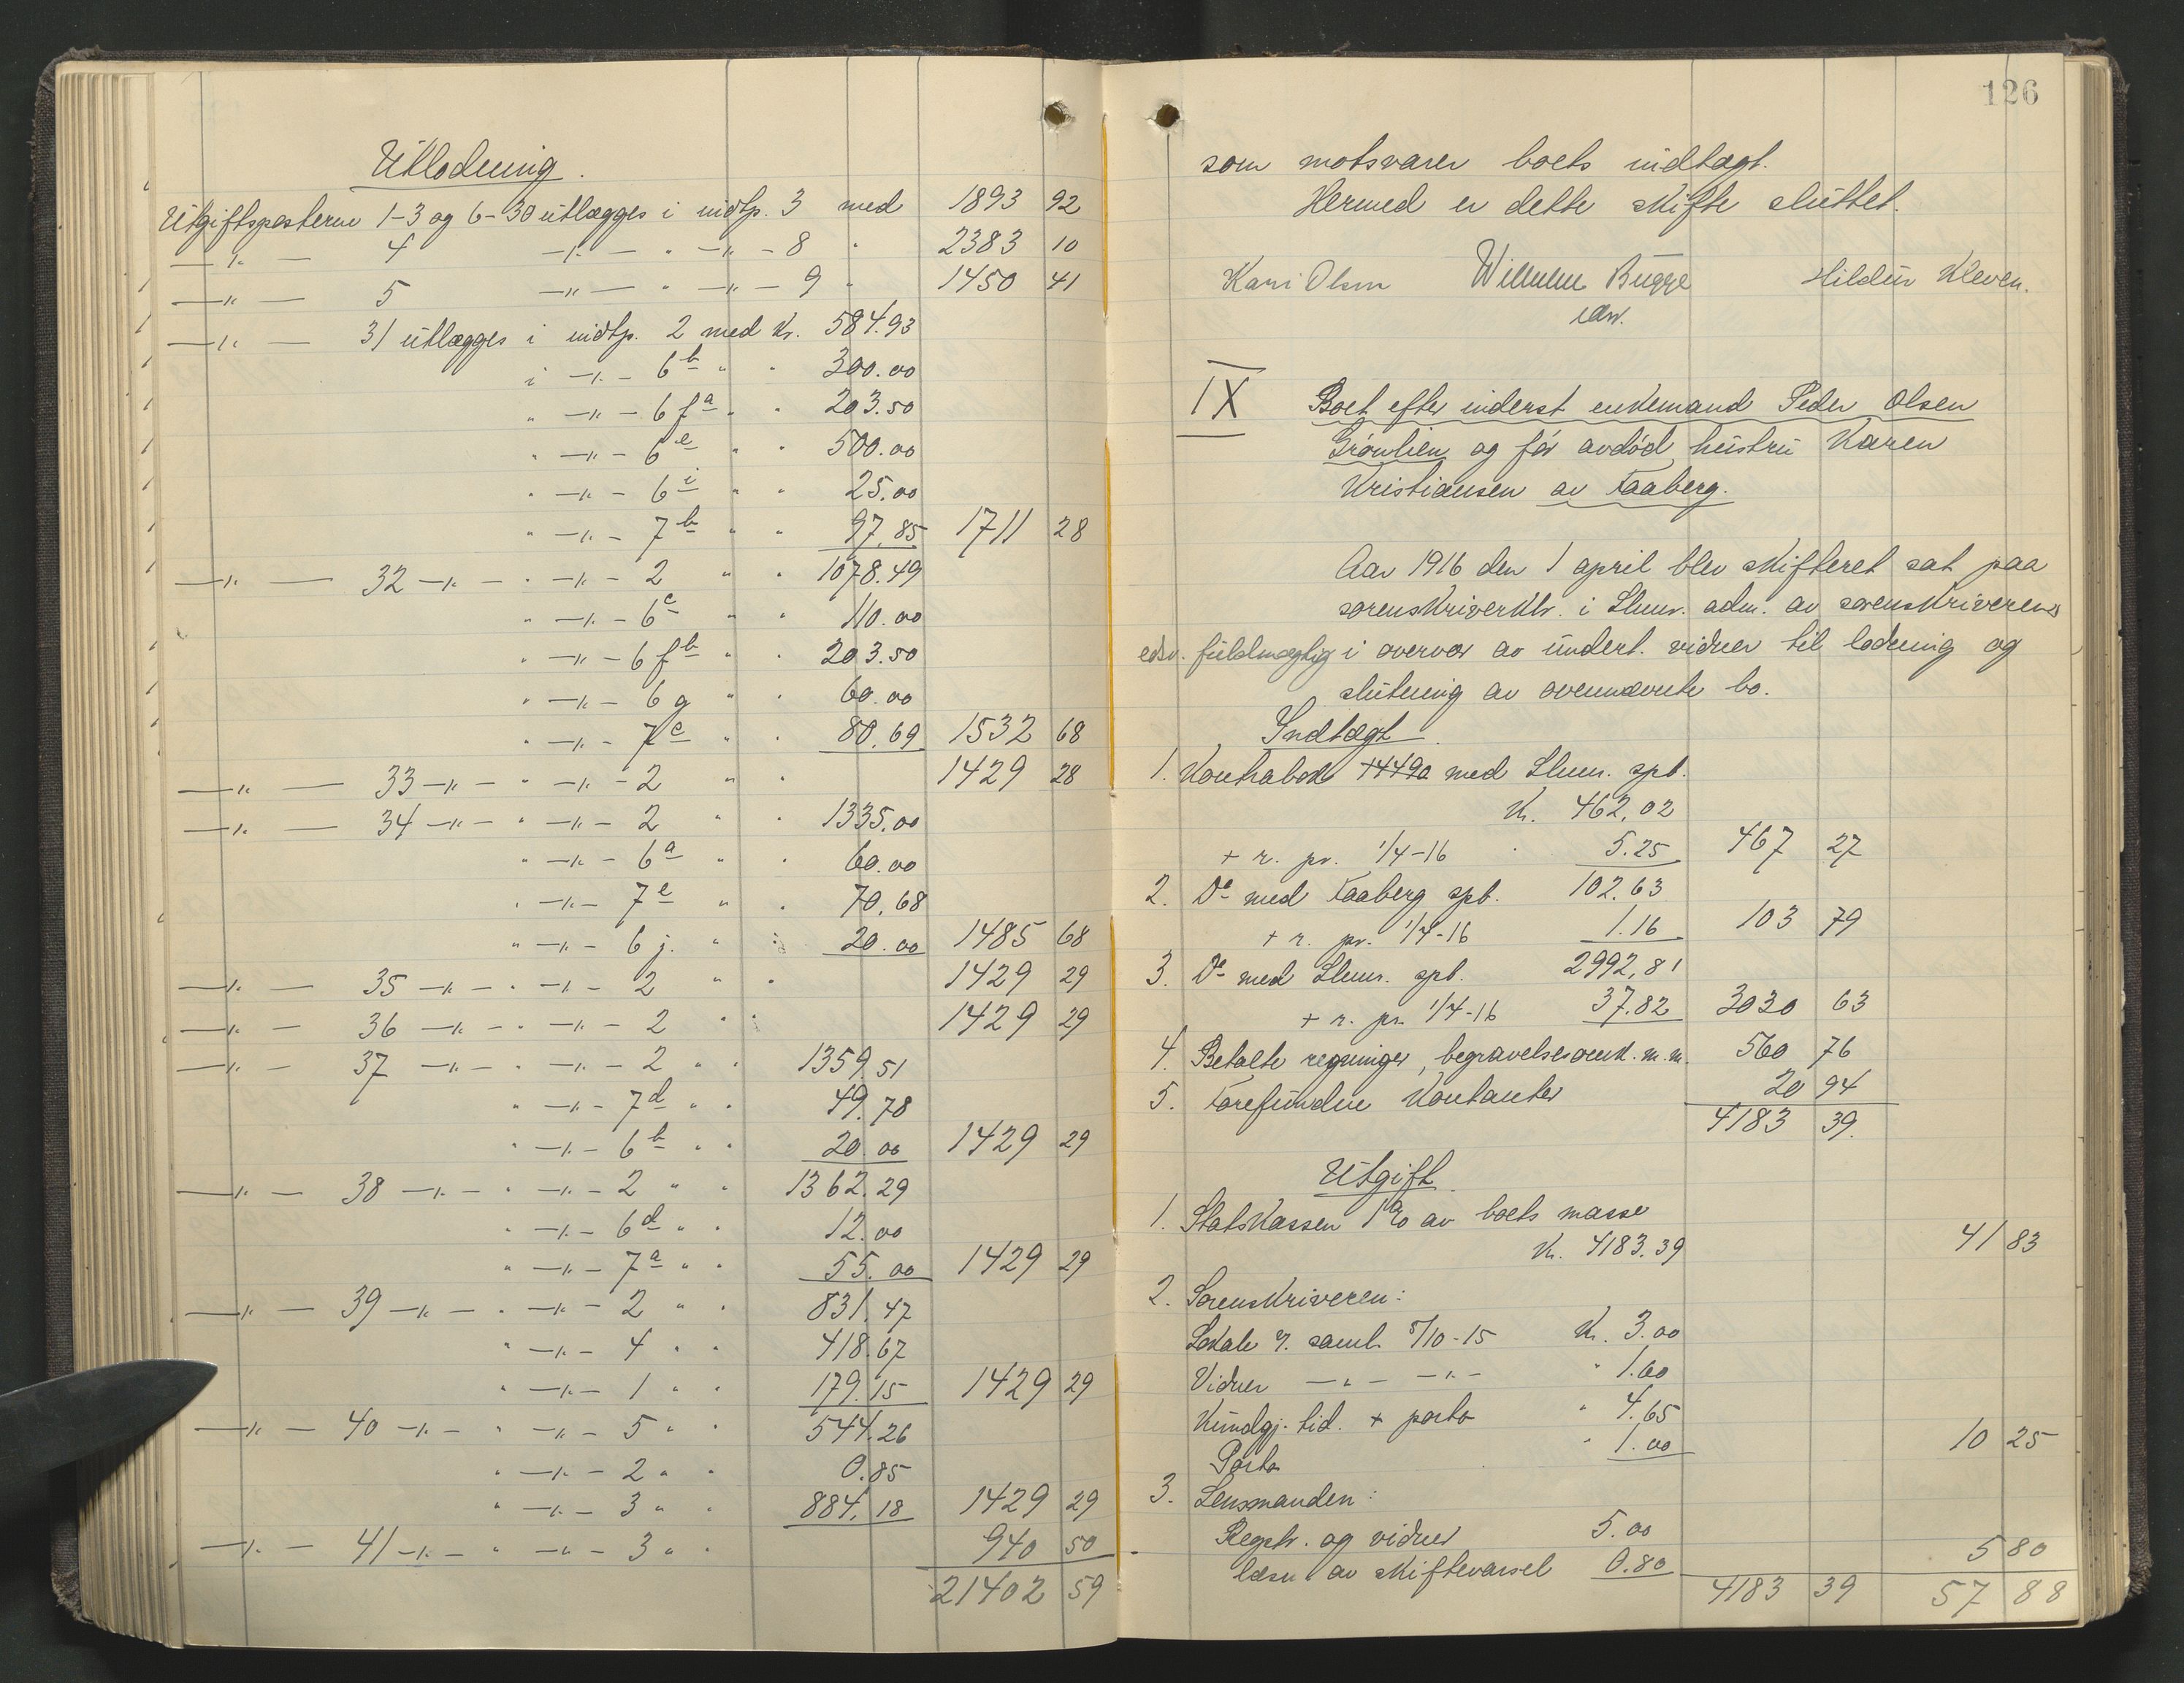 Utlodning.
Utgiftsposterne 1-3 og 6-30 utlægges i indtp. 3 med 1893 92
—"— 4 —"— " —"— 8 " 2383 10
—"— 5 —"— " —"— 9 " 1450 41
—"— 31 utlægges i indtp. 2 med Kr. 584.93
i —"— 6 b " " 300.00
" —"— 6 f a " " 203.50
" —"— 6 e " " 500.00
" —"— 6 i " " 25.00
" —"— 7 b " " 97.85 1711 28
—"— 32 —"— " —"— 2 " " 1078.49
" —"— 6 c " " 110.00
" —"— 6 f b " " 203.50
" —"— 6 g " " 60.00
" —"— 7 c " " 80.69 1532 68
—"— 33 —"— " —"— 2 " " 1429 28
—"— 34 —"— " —"— 2 " " 1335.00
" —"— 6 a " " 60.00
" —"— 7 e " " 70.68
" —"— 6 j. " " 20.00 1485 68
—"— 35 —"— " —"— 2 " " 1429 29
—"— 36 —"— " —"— 2 " " 1429 29
—"— 37 —"— " —"— 2 " " 1359.51
" —"— 7 d " " 49.78
" —"— 6 h " " 20.00 1429 29
—"— 38 —"— " —"— 2 " " 1362.29
" —"— 6 d " " 12.00
" —"— 7 a " " 55.00 1429 29
—"— 39 —"— " —"— 2 " " 831.47
" —"— 4 " " 418.67
" —"— 1 " " 179.15 1429 29
—"— 40 —"— " —"— 5 " " 544.26
" —"— 2 " " 0.85
" —"— 3 " " 884.18 1429 29
—"— 41 —"— " —"— 3 " " 940 50
21402 59
126
som motsvarer boets indtægt.
Hermed er dette skifte sluttet.
Kari Olsen Wilhelm Bugge Hildur Kleven.
edsv.
IX Boet efter inderst enkemand Peder Olsen
Grønlien og før avdød hustru Karen
Kristiansen av Faaberg.
Aar 1916 den 1 april blev skifteret sat paa
sorenskriverktr. i Lhmr. adm. av sorenskriverens
edsv. fuldmægtig i overvær av undert. vidner til lodning og
slutning av ovennævnte bo.
Indtægt.
1. Kontrabok 14490 med Lhmr. spb.
Kr. 462,02
+ r. pr. 1/4-16 " 5.25 467 27
2. Do med Faaberg spb. 102.63
+ r. pr. 1/4-16 1.16 103 79
3. Do med Lhmr. spb. 2992,81
+ r. pr. 1/4-16 37.82 3030 63
4. Betalte regninger, begravelsesomk. m.m. 560 76
5. Forefundne kontanter 20 94
4183 39.
Utgift.
1. Statskassen 1% av boets masse
Kr. 4183.39 41 83
2. Sorenskriveren:
Lokale v. saml. 8/10-15 Kr. 3.00
Vidner —"— —"— " 1.60
Kundgj. tid. + porto " 4.65
Porto " 1.00 10 25
3. Lensmanden:
Registr. og vidner 5.00
læsn. av skiftevarsel 0.80 5 80
4183 39 57 88